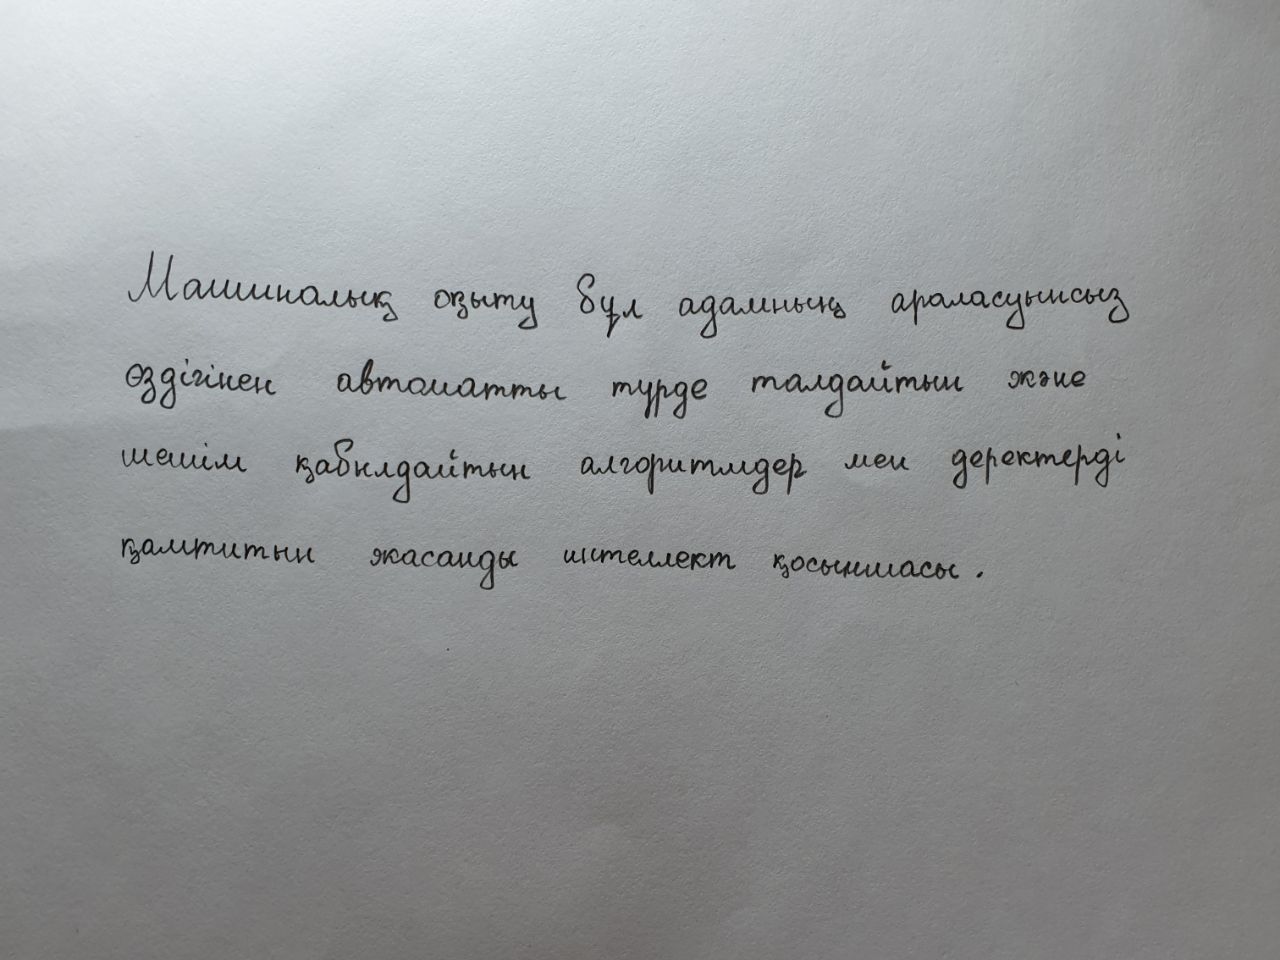 Машиналық оқыту бұл адамның араласуынсыз
өздігінен автоматты түрде талдайтын және
шешім қабылдайтын алгоритмдер мен деректерді
қамтитын жасанды интеллект қосыншасы.